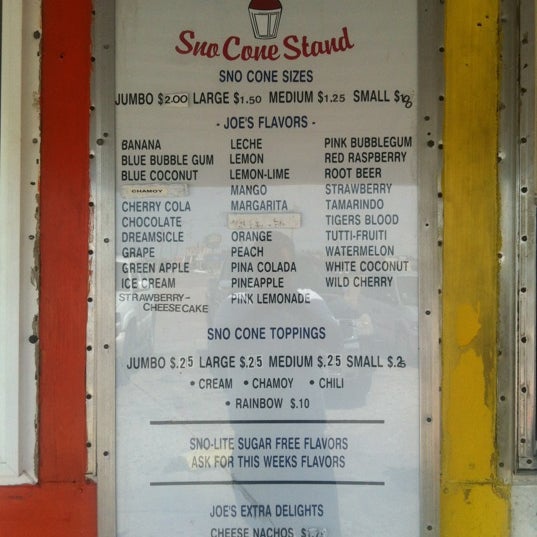 Sno Cone Stand
SNO CONE SIZES
JUMBO $2.00 LARGE $1.50 MEDIUM $1.25 SMALL
- JOE'S FLAVORS -
BANANA
BLUE BUBBLE GUM
BLUE COCONUT
CHAMOY
CHERRY COLA
CHOCOLATE
DREAMSICLE
GRAPE
GREEN APPLE
ICE CREAM
STRAWBERRY-
CHEESECAKE
LECHE
LEMON
LEMON-LIME
MANGO
MARGARITA
ORANGE
PEACH
PINA COLADA
PINEAPPLE
PINK LEMONADE
PINK BUBBLEGUM
RED RASPBERRY
ROOT BEER
STRAWBERRY
TAMARINDO
TIGERS BLOOD
TUTTI-FRUITI
WATERMELON
WHITE COCONUT
WILD CHERRY
SNO CONE TOPPINGS
JUMBO $.25 LARGE $.25 MEDIUM $.25 SMALL
• CREAM • CHAMOY • CHILI
• RAINBOW $.10
SNO-LITE SUGAR FREE FLAVORS
ASK FOR THIS WEEKS FLAVORS
JOE'S EXTRA DELIGHTS
CHEESE NACHOS